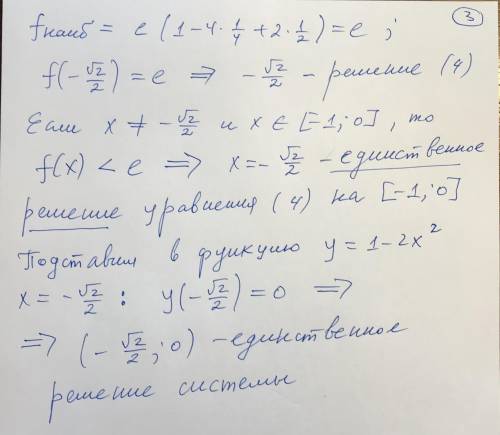 fнаиб = e (1 - 4 · 1/4 + 2 · 1/2) = e ; ③
f(-√2/2) = e ⇒ -√2/2 - решение (4)
Если x ≠ -√2/2 и x ∈ [-1; 0], то
f(x) < e ⇒ x = -√2/2 - единственное
решение уравнения (4) на [-1; 0]
Подставим в функцию y = 1 - 2x²
x = -√2/2 : y(-√2/2) = 0 ⇒
⇒ (-√2/2; 0) - единственное
решение системы